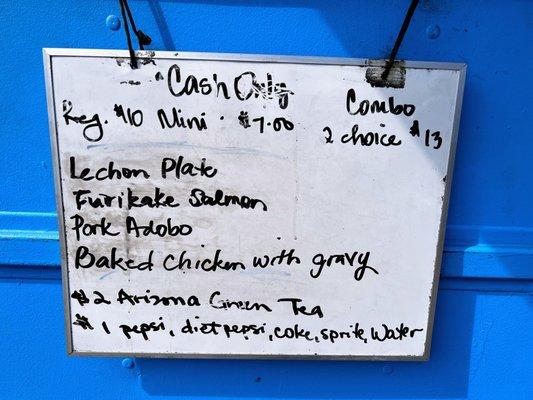 Cash Only
Reg. $10 Mini $7.00
Combo
2 choice $13
Lechon Plate
Furikake Salmon
Pork Adobo
Baked Chicken with gravy
$2 Arizona Green Tea
$1 pepsi, diet pepsi, coke, sprite, Water